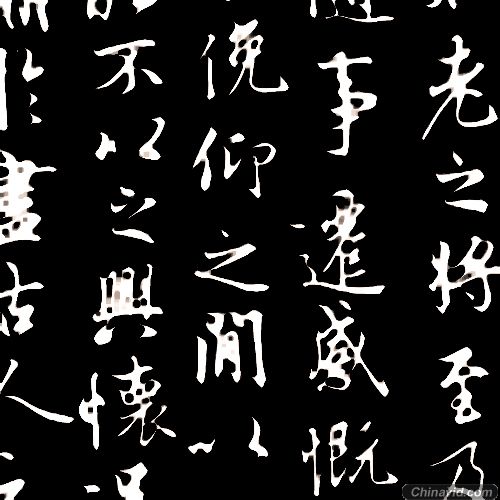 老之將至及
隨事遷感慨
俛仰之閒以
不以之興懷
於盡古人